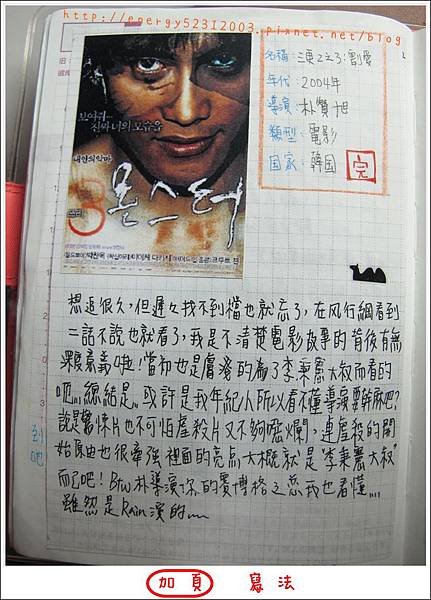 http://energy52312003.pixnet.net/blog
名稱:三更2之3:割愛
年代:2004年
導演:朴贊旭
類型:電影
国家:韓国
完
보여줘...
진짜 너의 모습을
내 안의 악마
쓰리
몬스터
想追很久,但遲々找不到檔也就忘了,在风行網看到
二話不說也就看了,我是不清楚電影故事的背後有無
深度意義啦!當初也是膚淺的為了李秉憲大叔而看的
吧,,,總結是,,,或許是我年紀小所以看不懂導演要幹麻吧?
說是驚悚片也不可怕虐殺片又不夠噁爛,連虐殺的開
始原由也很牽強 裡面的亮点大概就是"李秉憲大叔"
而已吧!Btw朴導演你的賽博格之恋我也看懂....
雖然是Rain演的....
到
吧
加頁 寫法